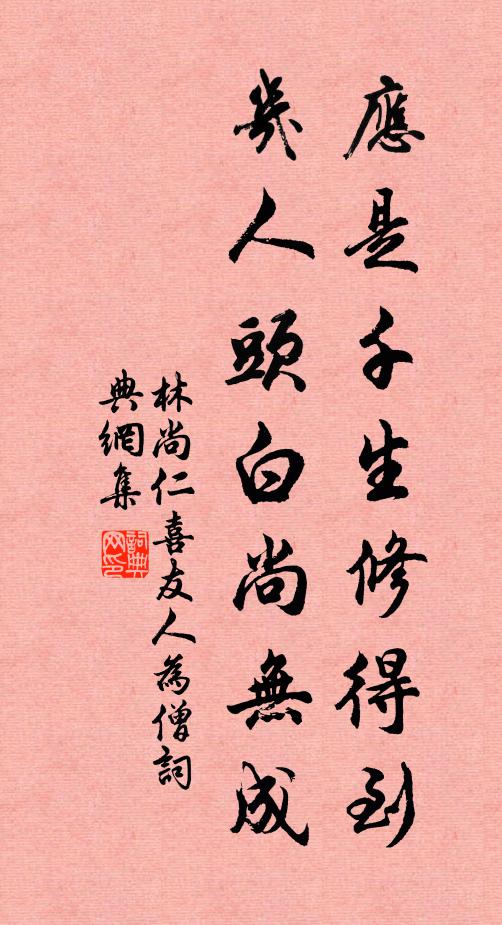 應是千生修得到
幾人頭白尚無成
林尚仁喜友人為僧詞
典網集
詞典
网印